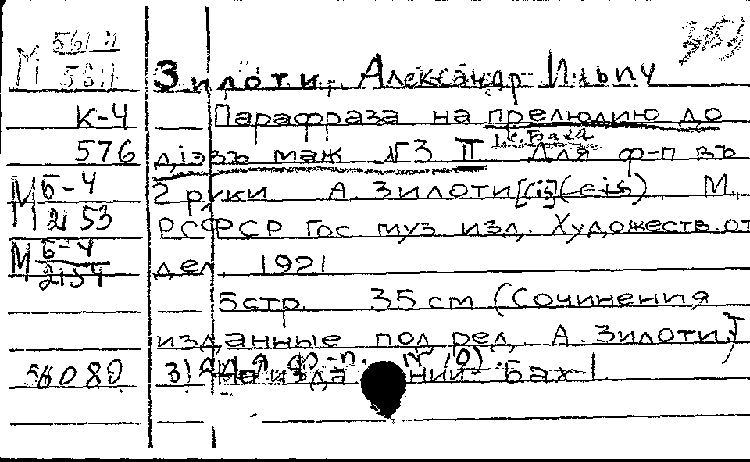 М 561
Зилоти, Александр Ильич
К-4
Парафраза на прелюдию до
И.С. Баха
576
диэзъ маж №3 II Для ф-п въ
М Б-4
2 руки А. Зилоти [Cis] (cis) М.,
2153
РСФСР Гос муз изд. Художеств. от
М Б-4
2154
дел. 1921
5 стр. 35 см (Сочинения
изданные под ред. А. Зилоти)
3) На издании Бах